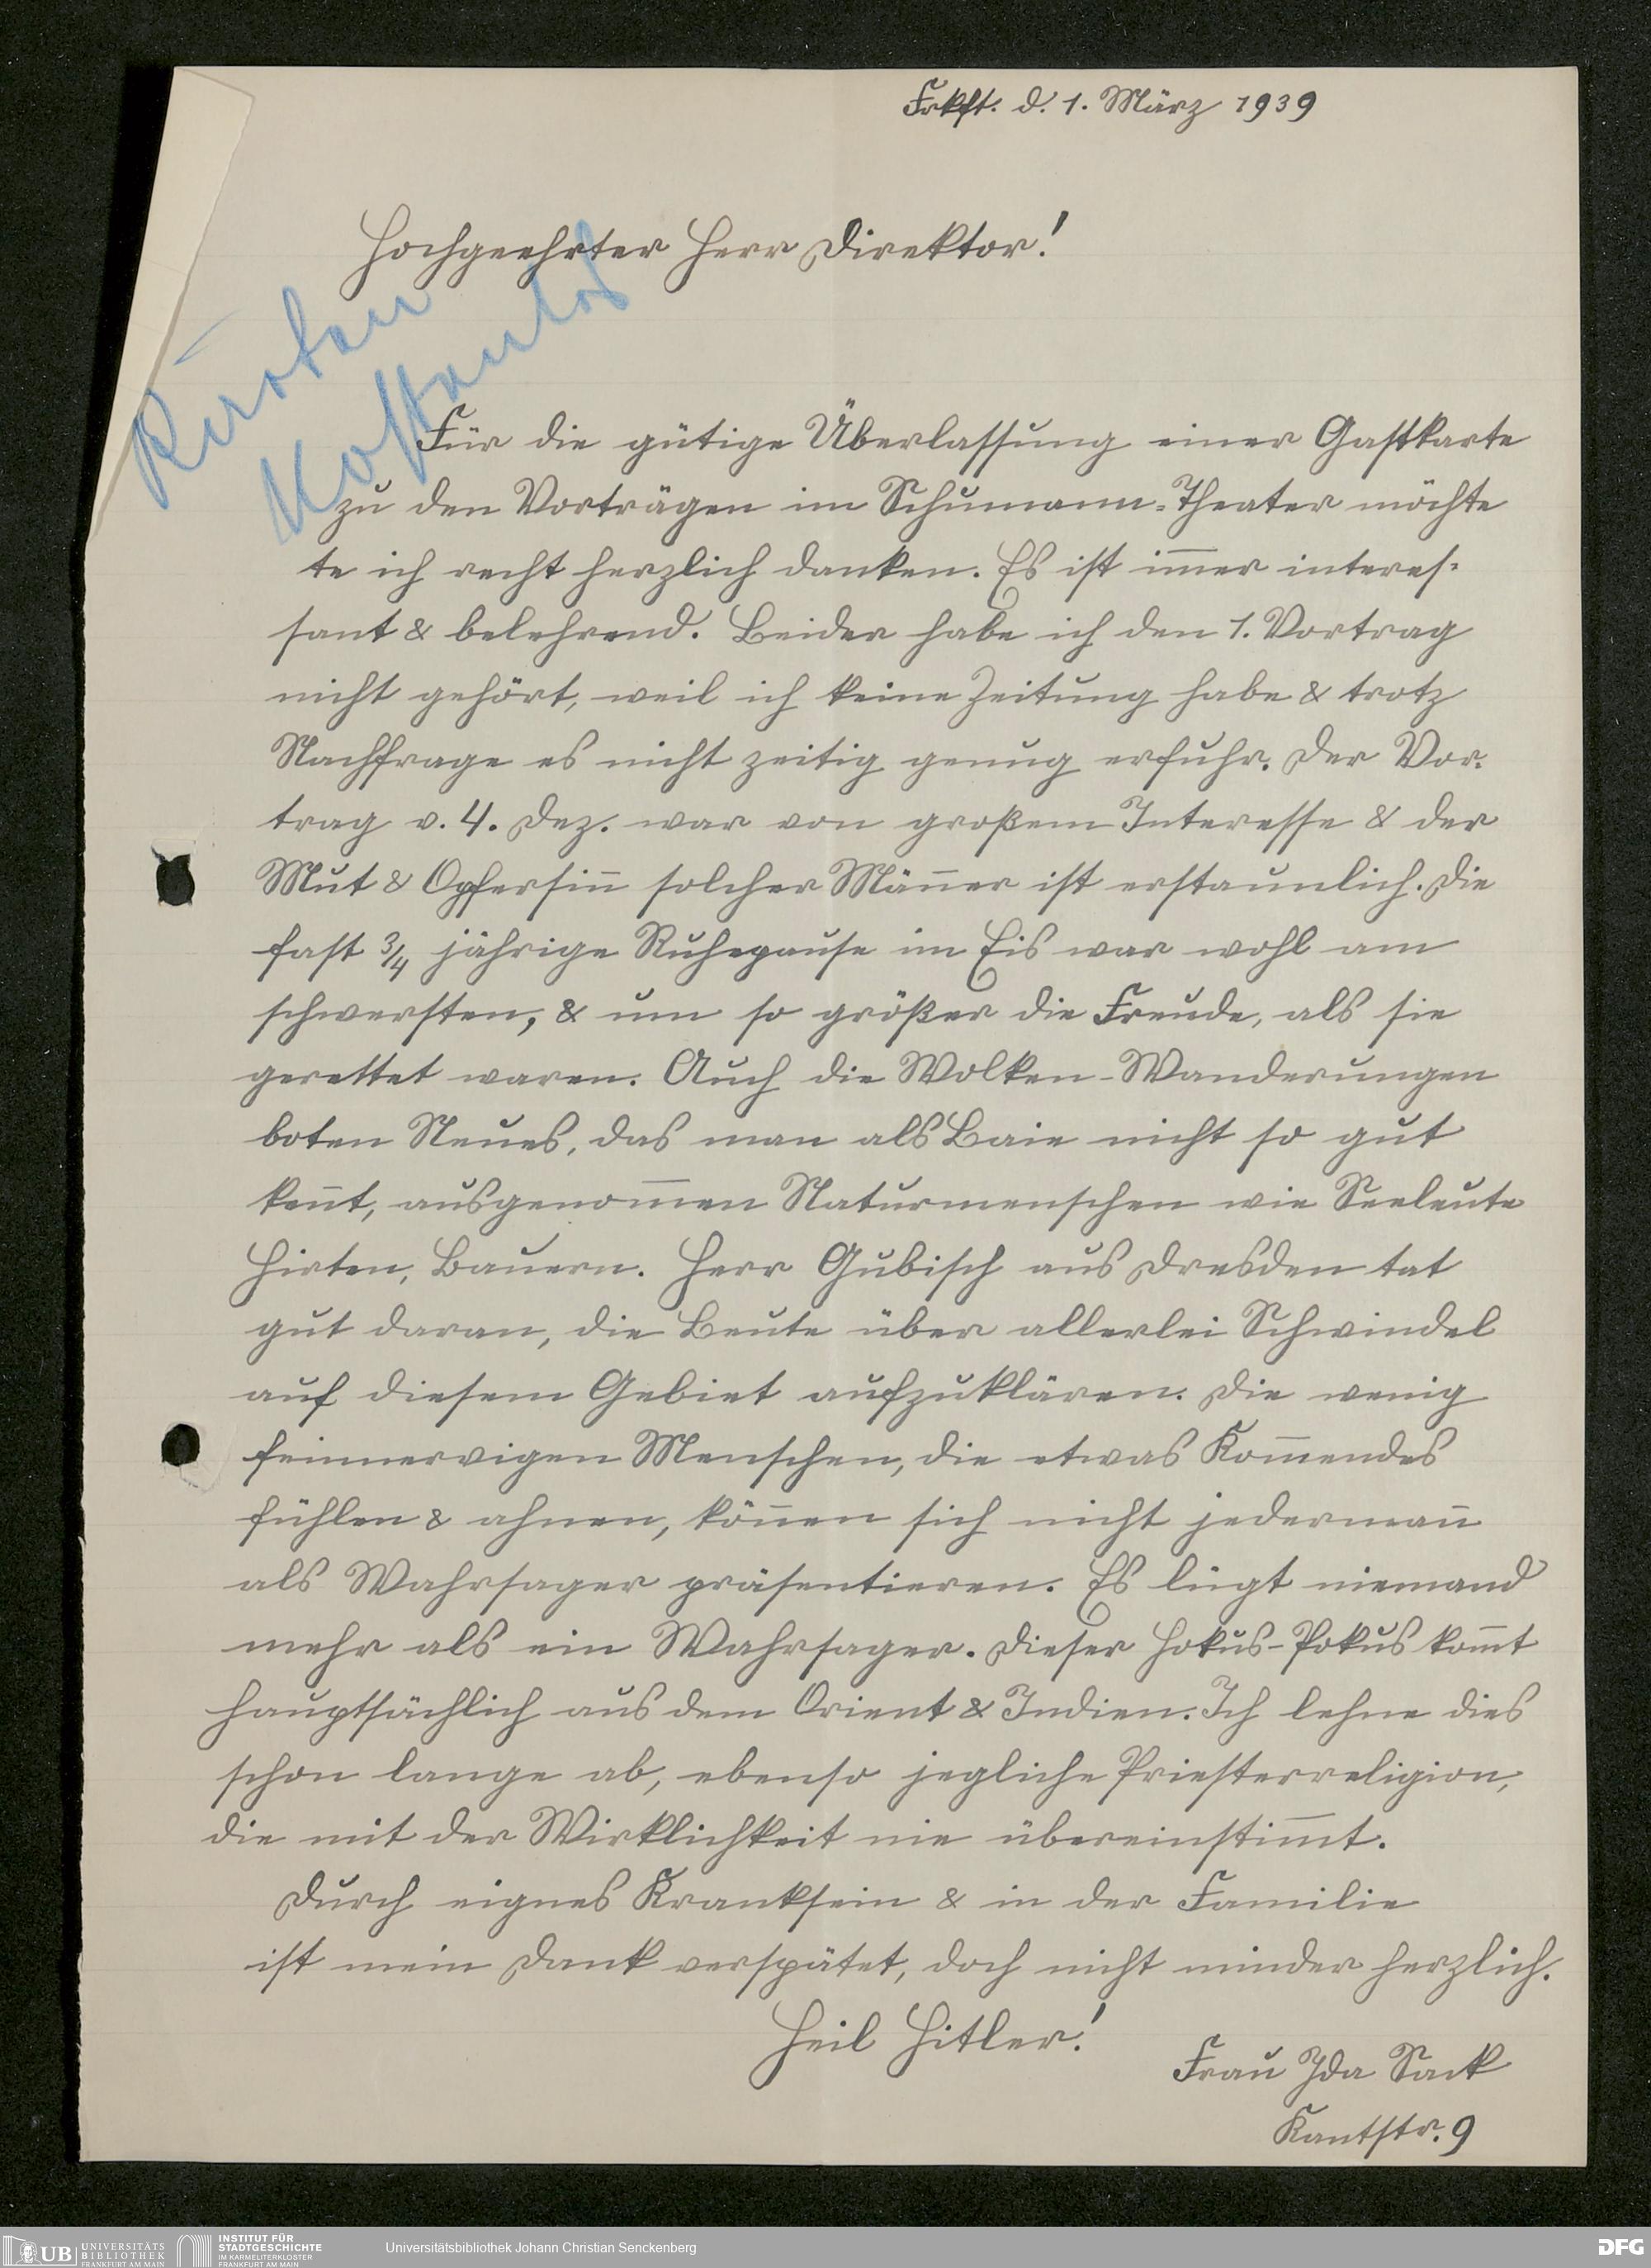 Frkft. d. 1. März 1939
Hochgeehrter Herr Direktor!
Für die gütige Überlassung einer Gastkarte
zu den Vorträgen im Schumann-Theater möchte
te ich recht herzlich danken. Es ist im̅er interes-
sant & belehrend. Leider habe ich den 1. Vortrag
nicht gehört, weil ich keine Zeitung habe & trotz
Nachfrage es nicht zeitig genug erfuhr. Der Vor-
trag v. 4. Dez. war von großem Interesse & der
Mut & Opfersin̅ solcher Män̅er ist erstaunlich. Die
fast 3/4 jährige Ruhepause im Eis war wohl am
schwersten, & um so größer die Freude, als sie
gerettet waren. Auch die Wolken-Wanderungen
boten Neues, das man als Laie nicht so gut
ken̅t, ausgenom̅en Naturmenschen wie Seeleute
Hirten, Bauern. Herr Gubisch aus Dresden tat
gut daran, die Leute über allerlei Schwindel
auf diesem Gebiet aufzuklären. Die wenig
feinnervigen Menschen, die etwas Kom̅endes
fühlen & ahnen, kön̅en sich nicht jederman̅
als Wahrsager präsentieren. Es lügt niemand
mehr als ein Wahrsager. Dieser Hokus-Pokus kom̅t
hauptsächlich aus dem Orient & Indien. Ich lehne dies
schon lange ab, ebenso jegliche Priesterreligion,
die mit der Wirklichkeit nie übereinstim̅t.
Durch eignes Kranksein & in der Familie
ist mein Dank verspätet, doch nicht minder herzlich.
Heil Hitler!
Frau Ida Sack
Kantstr. 9
UB UNIVERSITÄTS
BIBLIOTHEK
FRANKFURT AM MAIN
INSTITUT FÜR
STADTGESCHICHTE
IM KARMELITERKLOSTER
FRANKFURT AM MAIN
Universitätsbibliothek Johann Christian Senckenberg
DFG